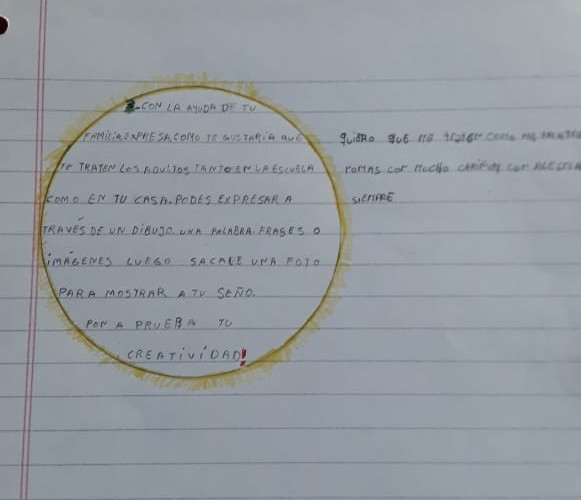 2. CON LA AYUDA DE TU
FAMILIA EXPRESA COMO TE GUSTARIA QUE
TE TRATEN LOS ADULTOS TANTO EN LA ESCUELA
COMO EN TU CASA. PODES EXPRESAR A
TRAVÉS DE UN DIBUJO. UNA PALABRA. FRASES O
IMÁGENES LUEGO SACALE UNA FOTO
PARA MOSTRAR A TU SEÑO.
PON A PRUEBA TU
CREATIVIDAD!
QUIERO QUE ME TRATEN COMO ME
CON MUCHO CARIÑO Y CON
SIEMPRE